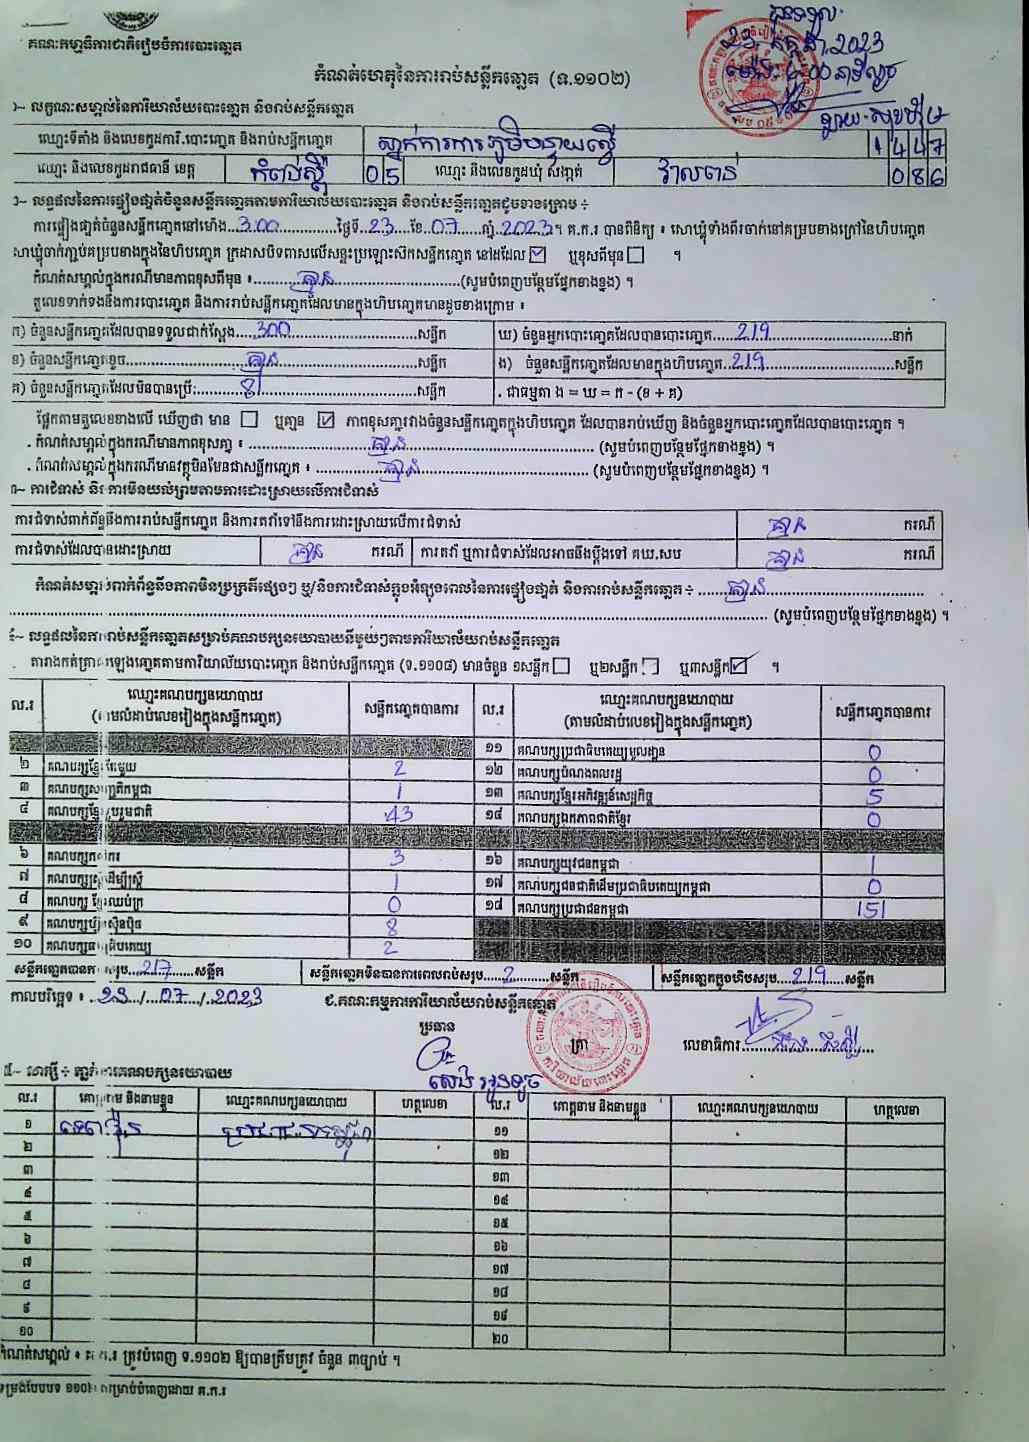 គណៈកម្មាធិការជាតិរៀបចំការបោះឆ្នោត
2023
កំណត់ហេតុនៃការរាប់សន្លឹកឆ្នោត (ទ.១១០២)
១~ លក្ខណៈសម្គាល់នៃការិយាល័យបោះឆ្នោត និងរាប់សន្លឹកឆ្នោត
ឈ្មោះទីតាំង និងលេខកូដការិ.បោះឆ្នោត និងរាប់សន្លឹកឆ្នោត 1447
ឈ្មោះ និងលេខកូដរាជធានី ខេត្ត កំពង់ស្ពឺ 05 ឈ្មោះ និងលេខកូដឃុំ សង្កាត់ វាលពន់ 086
២~ លទ្ធផលនៃការផ្ទៀងផ្ទាត់ចំនួនសន្លឹកឆ្នោតតាមការិយាល័យបោះឆ្នោត និងរាប់សន្លឹកឆ្នោតដូចខាងក្រោម ÷
ការផ្ទៀងផ្ទាត់ចំនួនសន្លឹកឆ្នោតនៅម៉ោង...3:00...ថ្ងៃទី...23...ខែ...07...ឆ្នាំ...2023។ គ.ក.រ បានពិនិត្យ ៖ សោឃ្លុំទាំងពីរចាក់នៅគម្របខាងក្រៅនៃហិបឆ្នោត
សោឃ្លុំចាក់ភ្ជាប់គម្របខាងក្នុងនៃហិបឆ្នោត ក្រដាសបិទពាសលើសន្ទះប្រឡោះស៊កសន្លឹកឆ្នោត នៅដដែល ☑ ឬខុសពីមុន ☐ ។
កំណត់សម្គាល់ក្នុងករណីមានភាពខុសពីមុន ៖ គ្មាន (សូមបំពេញបន្ថែមផ្នែកខាងខ្នង) ។
តួលេខទាក់ទងនឹងការបោះឆ្នោត និងការរាប់សន្លឹកឆ្នោតដែលមានក្នុងហិបឆ្នោតមានដូចខាងក្រោម ៖
ក) ចំនួនសន្លឹកឆ្នោតដែលបានទទួលជាក់ស្តែង...300...សន្លឹក ឃ) ចំនួនអ្នកបោះឆ្នោតដែលបានបោះឆ្នោត...219...នាក់
ខ) ចំនួនសន្លឹកឆ្នោតខូច...គ្មាន...សន្លឹក ង) ចំនួនសន្លឹកឆ្នោតដែលមានក្នុងហិបឆ្នោត...219...សន្លឹក
គ) ចំនួនសន្លឹកឆ្នោតដែលមិនបានប្រើ:...81...សន្លឹក . ជាធម្មតា ង = ឃ = ក - (ខ + គ)
ផ្អែកតាមតួលេខខាងលើ ឃើញថា មាន ☐ ឬគ្មាន ☑ ភាពខុសគ្នារវាងចំនួនសន្លឹកឆ្នោតក្នុងហិបឆ្នោត ដែលបានរាប់ឃើញ និងចំនួនអ្នកបោះឆ្នោតដែលបានបោះឆ្នោត ។
. កំណត់សម្គាល់ក្នុងករណីមានភាពខុសគ្នា ៖ គ្មាន (សូមបំពេញបន្ថែមផ្នែកខាងខ្នង) ។
. កំណត់សម្គាល់ក្នុងករណីមានវត្ថុមិនមែនជាសន្លឹកឆ្នោត ៖ គ្មាន (សូមបំពេញបន្ថែមផ្នែកខាងខ្នង) ។
៣~ ការជំទាស់ និងការមិនយល់ព្រមតាមការដោះស្រាយលើការជំទាស់
ការជំទាស់ពាក់ព័ន្ធនឹងការរាប់សន្លឹកឆ្នោត និងការតវ៉ាទៅនឹងការដោះស្រាយលើការជំទាស់ គ្មាន ករណី
ការជំទាស់ដែលបានដោះស្រាយ គ្មាន ករណី ការតវ៉ា ឬការជំទាស់ដែលអាចនឹងប្តឹងទៅ គឃ.សប គ្មាន ករណី
កំណត់សម្គាល់ពាក់ព័ន្ធនឹងភាពមិនប្រក្រតីផ្សេងៗ ឬ/និងការជំទាស់ក្នុងអំឡុងពេលនៃការផ្ទៀងផ្ទាត់ និងការរាប់សន្លឹកឆ្នោត ÷ គ្មាន
(សូមបំពេញបន្ថែមផ្នែកខាងខ្នង) ។
៤~ លទ្ធផលនៃការរាប់សន្លឹកឆ្នោតសម្រាប់គណបក្សនយោបាយនីមួយៗតាមការិយាល័យរាប់សន្លឹកឆ្នោត
តារាងកត់ត្រាសម្លេងឆ្នោតតាមការិយាល័យបោះឆ្នោត និងរាប់សន្លឹកឆ្នោត (ទ.១១០៨) មានចំនួន ១សន្លឹក ☐ ឬ២សន្លឹក ☐ ឬ៣សន្លឹក ☑ ។
ល.រ ឈ្មោះគណបក្សនយោបាយ (តាមលំដាប់លេខរៀងក្នុងសន្លឹកឆ្នោត) សន្លឹកឆ្នោតបានការ ល.រ ឈ្មោះគណបក្សនយោបាយ (តាមលំដាប់លេខរៀងក្នុងសន្លឹកឆ្នោត) សន្លឹកឆ្នោតបានការ
១១ គណបក្សប្រជាធិបតេយ្យមូលដ្ឋាន 0
២ គណបក្សខ្មែរតែមួយ 2 ១២ គណបក្សបំណងពលរដ្ឋ 0
៣ គណបក្សសញ្ជាតិកម្ពុជា 1 ១៣ គណបក្សខ្មែរអភិវឌ្ឍន៍សេដ្ឋកិច្ច 5
៤ គណបក្សខ្មែររួបរួមជាតិ 43 ១៤ គណបក្សឯកភាពជាតិខ្មែរ 0
៦ គណបក្សកសិករ 3 ១៦ គណបក្សយុវជនកម្ពុជា 1
៧ គណបក្សស្ត្រីដើម្បីស្ត្រី 1 ១៧ គណបក្សជនជាតិដើមប្រជាធិបតេយ្យកម្ពុជា 0
៨ គណបក្សខ្មែរឈប់ក្រ 0 ១៨ គណបក្សប្រជាជនកម្ពុជា 151
៩ គណបក្សហ៊្វុនស៊ិនប៉ិច 8
១០ គណបក្សធម្មាធិបតេយ្យ 2
សន្លឹកឆ្នោតបានការសរុប...217...សន្លឹក សន្លឹកឆ្នោតមិនបានការពេលរាប់សរុប...2...សន្លឹក សន្លឹកឆ្នោតក្នុងហិបសរុប...219...សន្លឹក
កាលបរិច្ឆេទ ៖ 23/07/2023 ៩.គណៈកម្មការការិយាល័យរាប់សន្លឹកឆ្នោត
ប្រធាន ត្រា លេខាធិការ
៥~ សាក្សី ÷ ភ្នាក់ងារគណបក្សនយោបាយ
ល.រ គោត្តនាម និងនាមខ្លួន ឈ្មោះគណបក្សនយោបាយ ហត្ថលេខា ល.រ គោត្តនាម និងនាមខ្លួន ឈ្មោះគណបក្សនយោបាយ ហត្ថលេខា
១ ប្រជាជនកម្ពុជា ១១
២ ១២
៣ ១៣
៤ ១៤
៥ ១៥
៦ ១៦
៧ ១៧
៨ ១៨
៩ ១៩
១០ ២០
កំណត់សម្គាល់ ៖ គ.ក.រ ត្រូវបំពេញ ទ.១១០២ ឱ្យបានត្រឹមត្រូវ ចំនួន ៣ច្បាប់ ។
ទម្រង់បែបបទ ១១០២ សម្រាប់បំពេញដោយ គ.ក.រ